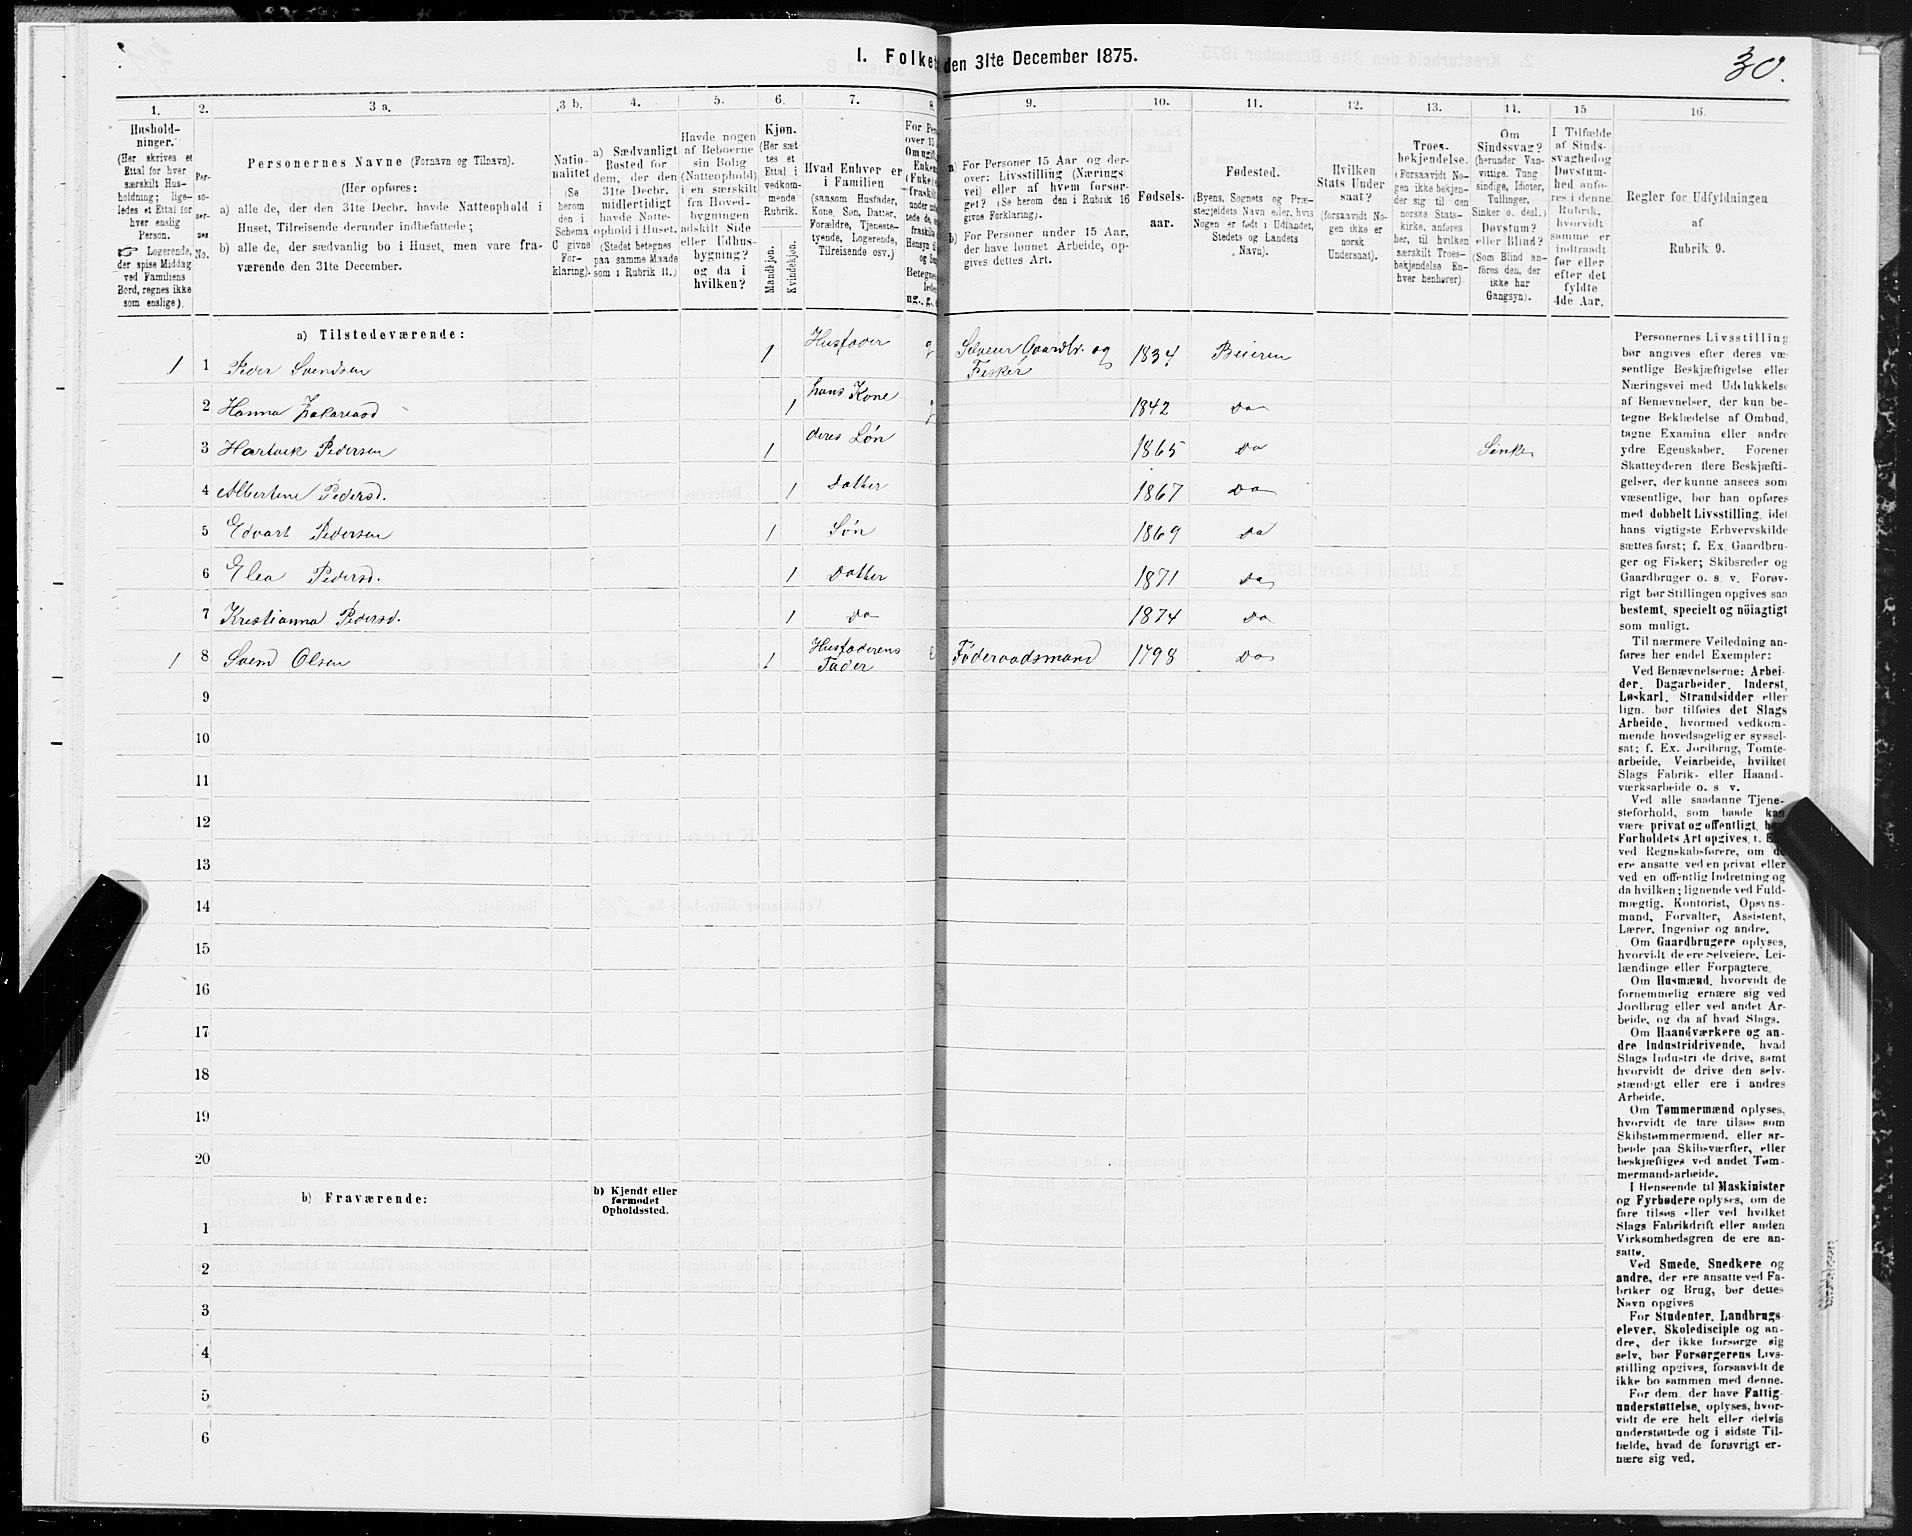 30.
I. Folket
den 31te December 1875.
1.
2.
3 a.
3 b.
4.
5.
6.
7.
8.
9.
10.
11.
12.
13.
14.
15
16.
Hushold-
ninger.
(Her skrives et
Ettal for hver
særskilt Hus-
holdning; lige-
ledes et Ettal for
hver enslig
Person.
☞ Logerende,
der spise Middag
ved Familiens
Bord, regnes ikke
som enslige).
Per-
so-
ner-
nes
No.
Personernes Navne (Fornavn og Tilnavn).
(Her opføres:
a) alle de, der den 31te Decbr. havde Natteophold i
Huset, Tilreisende derunder indbefattede;
b) alle de, der sædvanlig bo i Huset, men vare fra-
værende den 31te December.
Natio-
nalitet
(Se
herom
den i
Schema
C givne
For-
klaring).
a) Sædvanligt
Bosted for
dem, der den
31te Decbr.
midlertidigt
havde Natte-
ophold i Huset.
(Stedet betegnes
paa samme Maade
som i Rubrik 11.)
Havde nogen
af Beboerne
sin Bolig
(Natteophold)
i en særskilt
fra Hoved-
bygningen
adskilt Side
eller Udhus-
bygning?
og da i
hvilken?
Kjøn.
(Her sæt
tes et
Ettal i
vedkom-
mende
Rubrik.
Mandkjøn.
Kvindekjøn.
Hvad Enhver er
i Familien
(saasom Husfader,
Kone, Søn, Datter,
Forældre, Tjeneste-
tyende, Logerende,
Tilreisende osv.)
For Pers
over 15
Om ugift,
Enkem
(Enke)
fraskilt
a) For Personer 15 Aar og der-
over: Livsstilling (Nærings
vei) eller af hvem forsør-
get? (Se herom den i Rubrik 16
givne Forklaring).
b) For Personer under 15 Aar,
der have lønnet Arbeide, op-
gives dettes Art.
Fødsels-
aar.
Fødested.
(Byens, Sognets og Præ-
stegjeldets Navn eller, hvis
Nogen er født i Udlandet,
Stedets og Landets
Navn).
Hvilken
Stats Under
saat?
(forsaavidt No-
gen ikke er
norsk
Undersaat).
Troes-
bekjendelse.
(Forsaavidt No-
gen ikke bekjen-
der sig til den
norske Stats-
kirke, anføres
her, til hvilken
særskilt Troes-
bekjendelse En-
hver henhører).
Om
Sindssvag?
(herunder Van-
vittige, Tung
sindige, Idioter,
Tullinger,
Sinker o. desl.)
Døvstum?
eller Blind?
(Som Blind an-
føres den, der
ikke har
Gangsyn).
I Tilfælde
af Sinds-
svaghed og
Døvstum-
hed anfø-
res i denne
Rubrik,
hvorvidt
samme er
indtraadt
før eller
efter det
fyldte
4de Aar.
Regler for Udfyldningen
af
Rubrik 9.
a) Tilstedeværende:
1 1 Peder Svendsen 1 Husfader g Selveier Gaardbr. og Fisker 1834 Beieren
2 Hanna Zakariasd 1 hans Kone g 1842 Do
3 Hartvik Pedersen 1 deres Søn 1865 Do Sinke
4 Albertine Pedersd. 1 Datter 1867 Do
5 Edvart Pedersen 1 Søn 1869 Do
6 Elea Pedersd. 1 Datter 1871 Do
7 Kristianna Pedersd. 1 Do 1874 Do
1 8 Svend Olsen 1 Husfaderens Fader e Föderaadsmand 1798 Do
9
10
11
12
13
14
15
16
17
18
19
20
b) Fraværende:
b) Kjendt eller
formodet
Opholdssted.
1
2
3
4
5
6
Personernes Livsstilling
bør angives efter deres væ-
sentlige Beskjæftigelse eller
Næringsvei med Udelukkelse
af Benævnelser, der kun be-
tegne Beklædelse af Ombud,
tagne Examina eller andre
ydre Egenskaber. Forener
Skatteyderen flere Beskjæfti-
gelser, der kunne ansees som
væsentlige, bør han opføres
med dobbelt Livsstilling, idet
hans vigtigste Erhvervskilde
sættes først; f. Ex. Gaardbru-
ger og Fisker; Skibsreder og
Gaardbruger o. s. v. Forøv-
rigt bør Stillingen opgives saa
bestemt, specielt og nöiagtigt
som muligt.
Til nærmere Veiledning an-
føres her endel Exempler:
Ved Benævnelserne: Arbei-
der, Dagarbeider, Inderst,
Løskarl, Strandsidder eller
lign. bør tilføies det Slags
Arbeide, hvormed vedkom-
mende hovedsagelig er syssel-
sat; f. Ex. Jordbrug, Tomte-
arbeide, Veiarbeide, hvilket
Slags Fabrik- eller Haand-
værksarbeide o. s v.
Ved alle saadanne Tjene-
steforhold, som baade kan
være privat og offentligt,
Forholdets Art opgives, t. E
ved Regnskabsførere, om de
ere ansatte ved en privat eller
ved en offentlig Indretning og
da hvilken; lignende ved Fuld-
mægtig, Kontorist, Opsyns-
mand, Forvalter, Assistent,
Lærer, Ingeniør og andre.
Om Gaardbrugere oplyses,
hvorvidt de ere Selveiere, Lei-
lændinge eller Forpagtere.
Om Husmænd, hvorvidt de
fornemmelig ernære sig ved
Jordbrug eller ved andet Ar-
beide, og da af hvad Slags.
Om Haandværkere og an-
dre Industridrivende, hvad
Slags Industri de drive, samt
hvorvidt de drive den selv-
stændigt eller ere i andres
Arbeide.
Om Tømmermænd oplyses,
hvorvidt de fare tilsøs som
Skibstømmermænd, eller ar-
beide paa Skibsværfter, eller
beskjæftiges ved andet Tøm-
mermandsarbeide.
I Henseende til Maskinister
og Fyrbødere oplyses, om de
fare tilsøs eller ved hvilket
Slags Fabrikdrift eller anden
Virksomhedsgren de ere an-
satte.
Ved Smede, Snedkere og
andre, der ere ansatte ved Fa-
briker og Brug, bør dettes
Navn opgives
For Studenter, Landbrugs-
elever, Skoledisciple og an-
dre, der ikke forsørge sig
selv, bør Forsørgerens Livs-
stilling opgives, forsaavidt de
ikke bo sammen med denne.
For dem, der have Fattig-
understøttelse, oplyses, hvor-
vidt de ere helt eller delvis
understøttede og i sidste Til-
fælde, hvad de forøvrigt er-
nære sig ved.